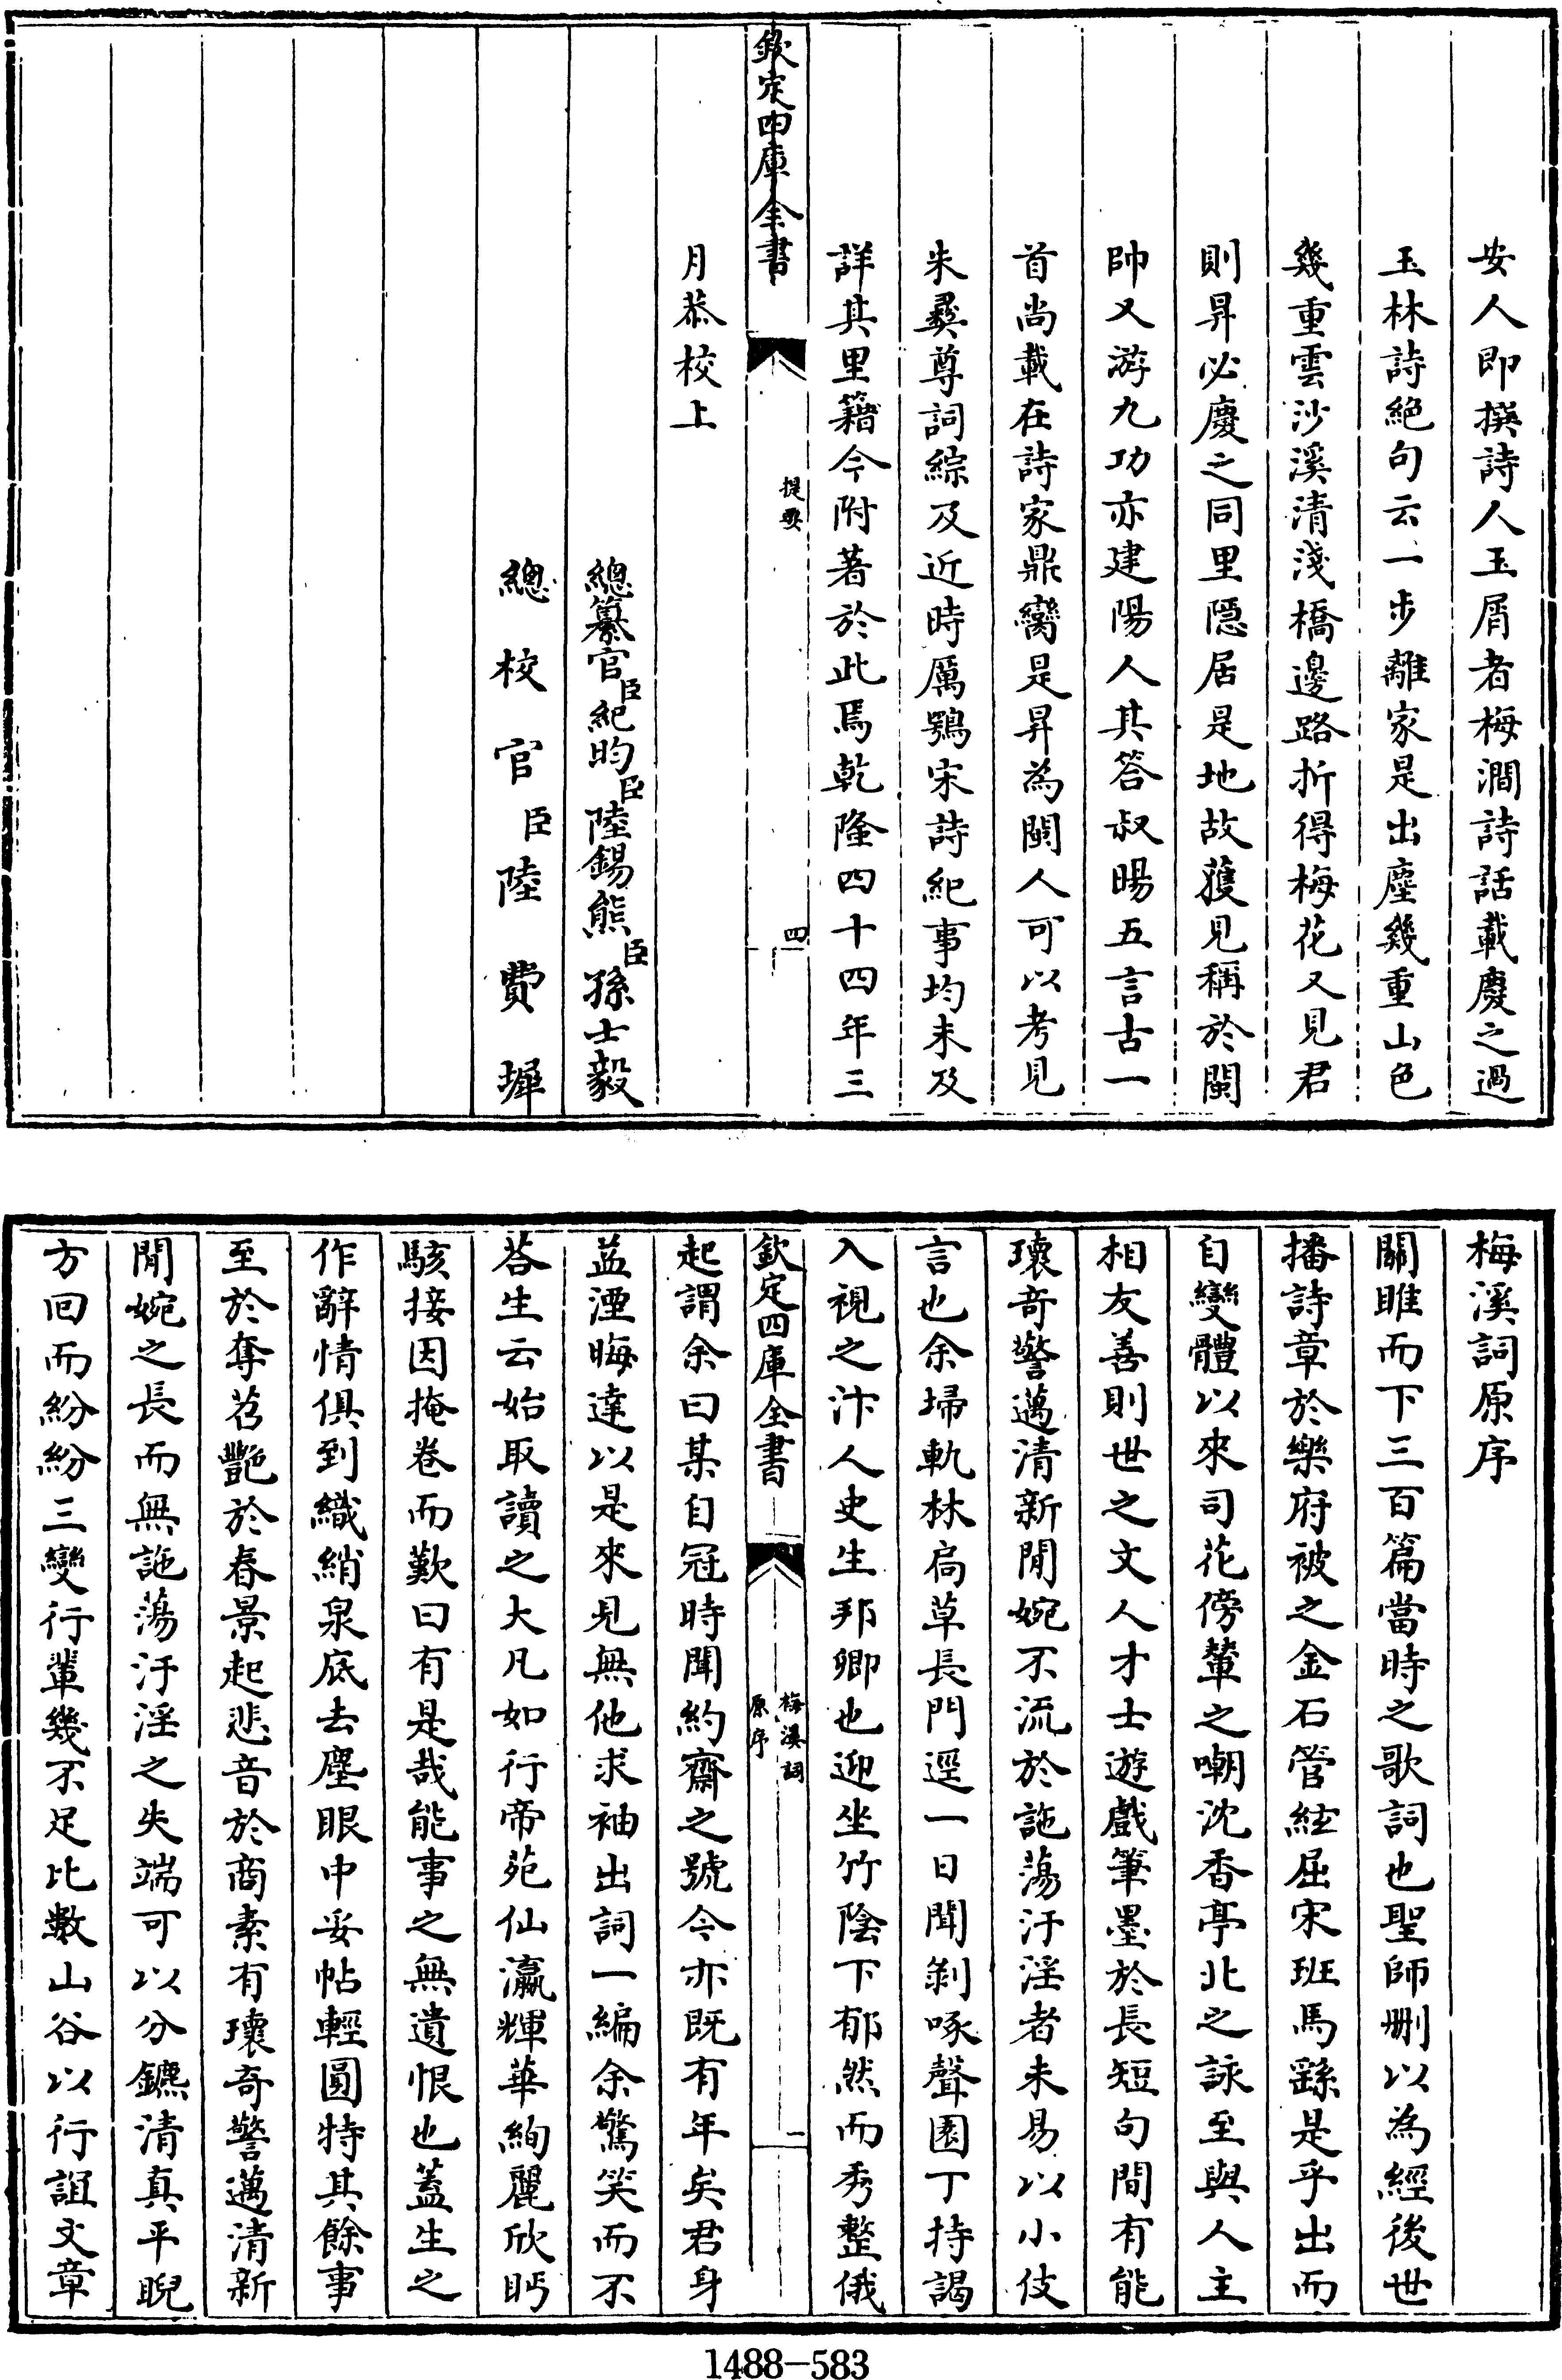 安人即撰詩人玉屑者梅澗詩話載慶之過
玉林詩絕句云一步離家是出塵幾重山色
幾重雲沙溪清淺橋邊路折得梅花又見君
則昇必慶之同里隱居是地故獲見稱於閩
帥又游九功亦建陽人其答叔暘五言古一
首尚載在詩家鼎臠是昇為閩人可以考見
朱彞尊詞綜及近時厲鶚宋詩紀事均未及
詳其里籍今附著於此焉乾隆四十四年三
欽定四庫全書
提要
四
月恭校上
總纂官臣紀昀臣陸錫熊臣孫士毅
總校官臣陸費墀
梅溪詞原序
關雎而下三百篇當時之歌詞也聖師刪以為經後世
播詩章於樂府被之金石管絃屈宋班馬繇是乎出而
自變體以來司花傍輦之嘲沈香亭北之詠至與人主
相友善則世之文人才士遊戲筆墨於長短句間有能
瓌奇警邁清新閒婉不流於詑蕩汙淫者未易以小伎
言也余埽軌林扃草長門逕一日聞剝啄聲園丁持謁
入視之汴人史生邦卿也迎坐竹陰下郁然而秀整俄
欽定四庫全書
梅溪詞
原序
一
起謂余曰某自冠時聞約齋之號今亦既有年矣君身
益湮晦達以是來見無他求袖出詞一編余驚笑而不
荅生云始取讀之大凡如行帝苑仙瀛輝華絢麗欣眄
駭接因掩卷而歎曰有是哉能事之無遺恨也蓋生之
作辭情俱到織綃泉底去塵眼中妥帖輕圓特其餘事
至於奪苕艷於春景起悲音於商素有瓌奇警邁清新
閒婉之長而無詑蕩汙淫之失端可以分鑣清真平睨
方回而紛紛三變行輩幾不足比數山谷以行誼文章
1488-583